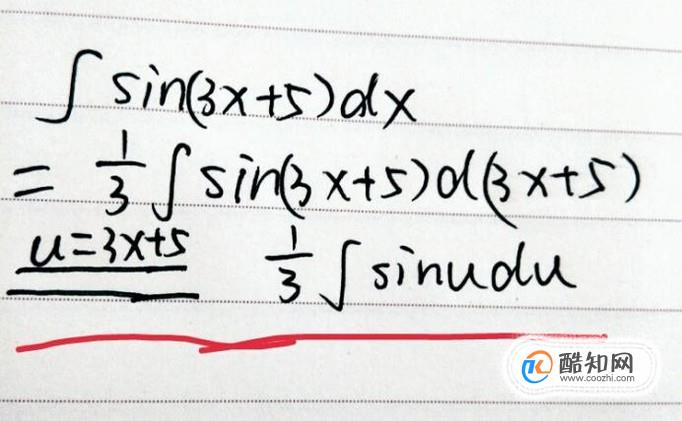 ∫ sin(3x+5)dx
= 1/3 ∫ sin(3x+5)d(3x+5)
u=3x+5 1/3 ∫ sinudu
酷知网
www.coozhi.com